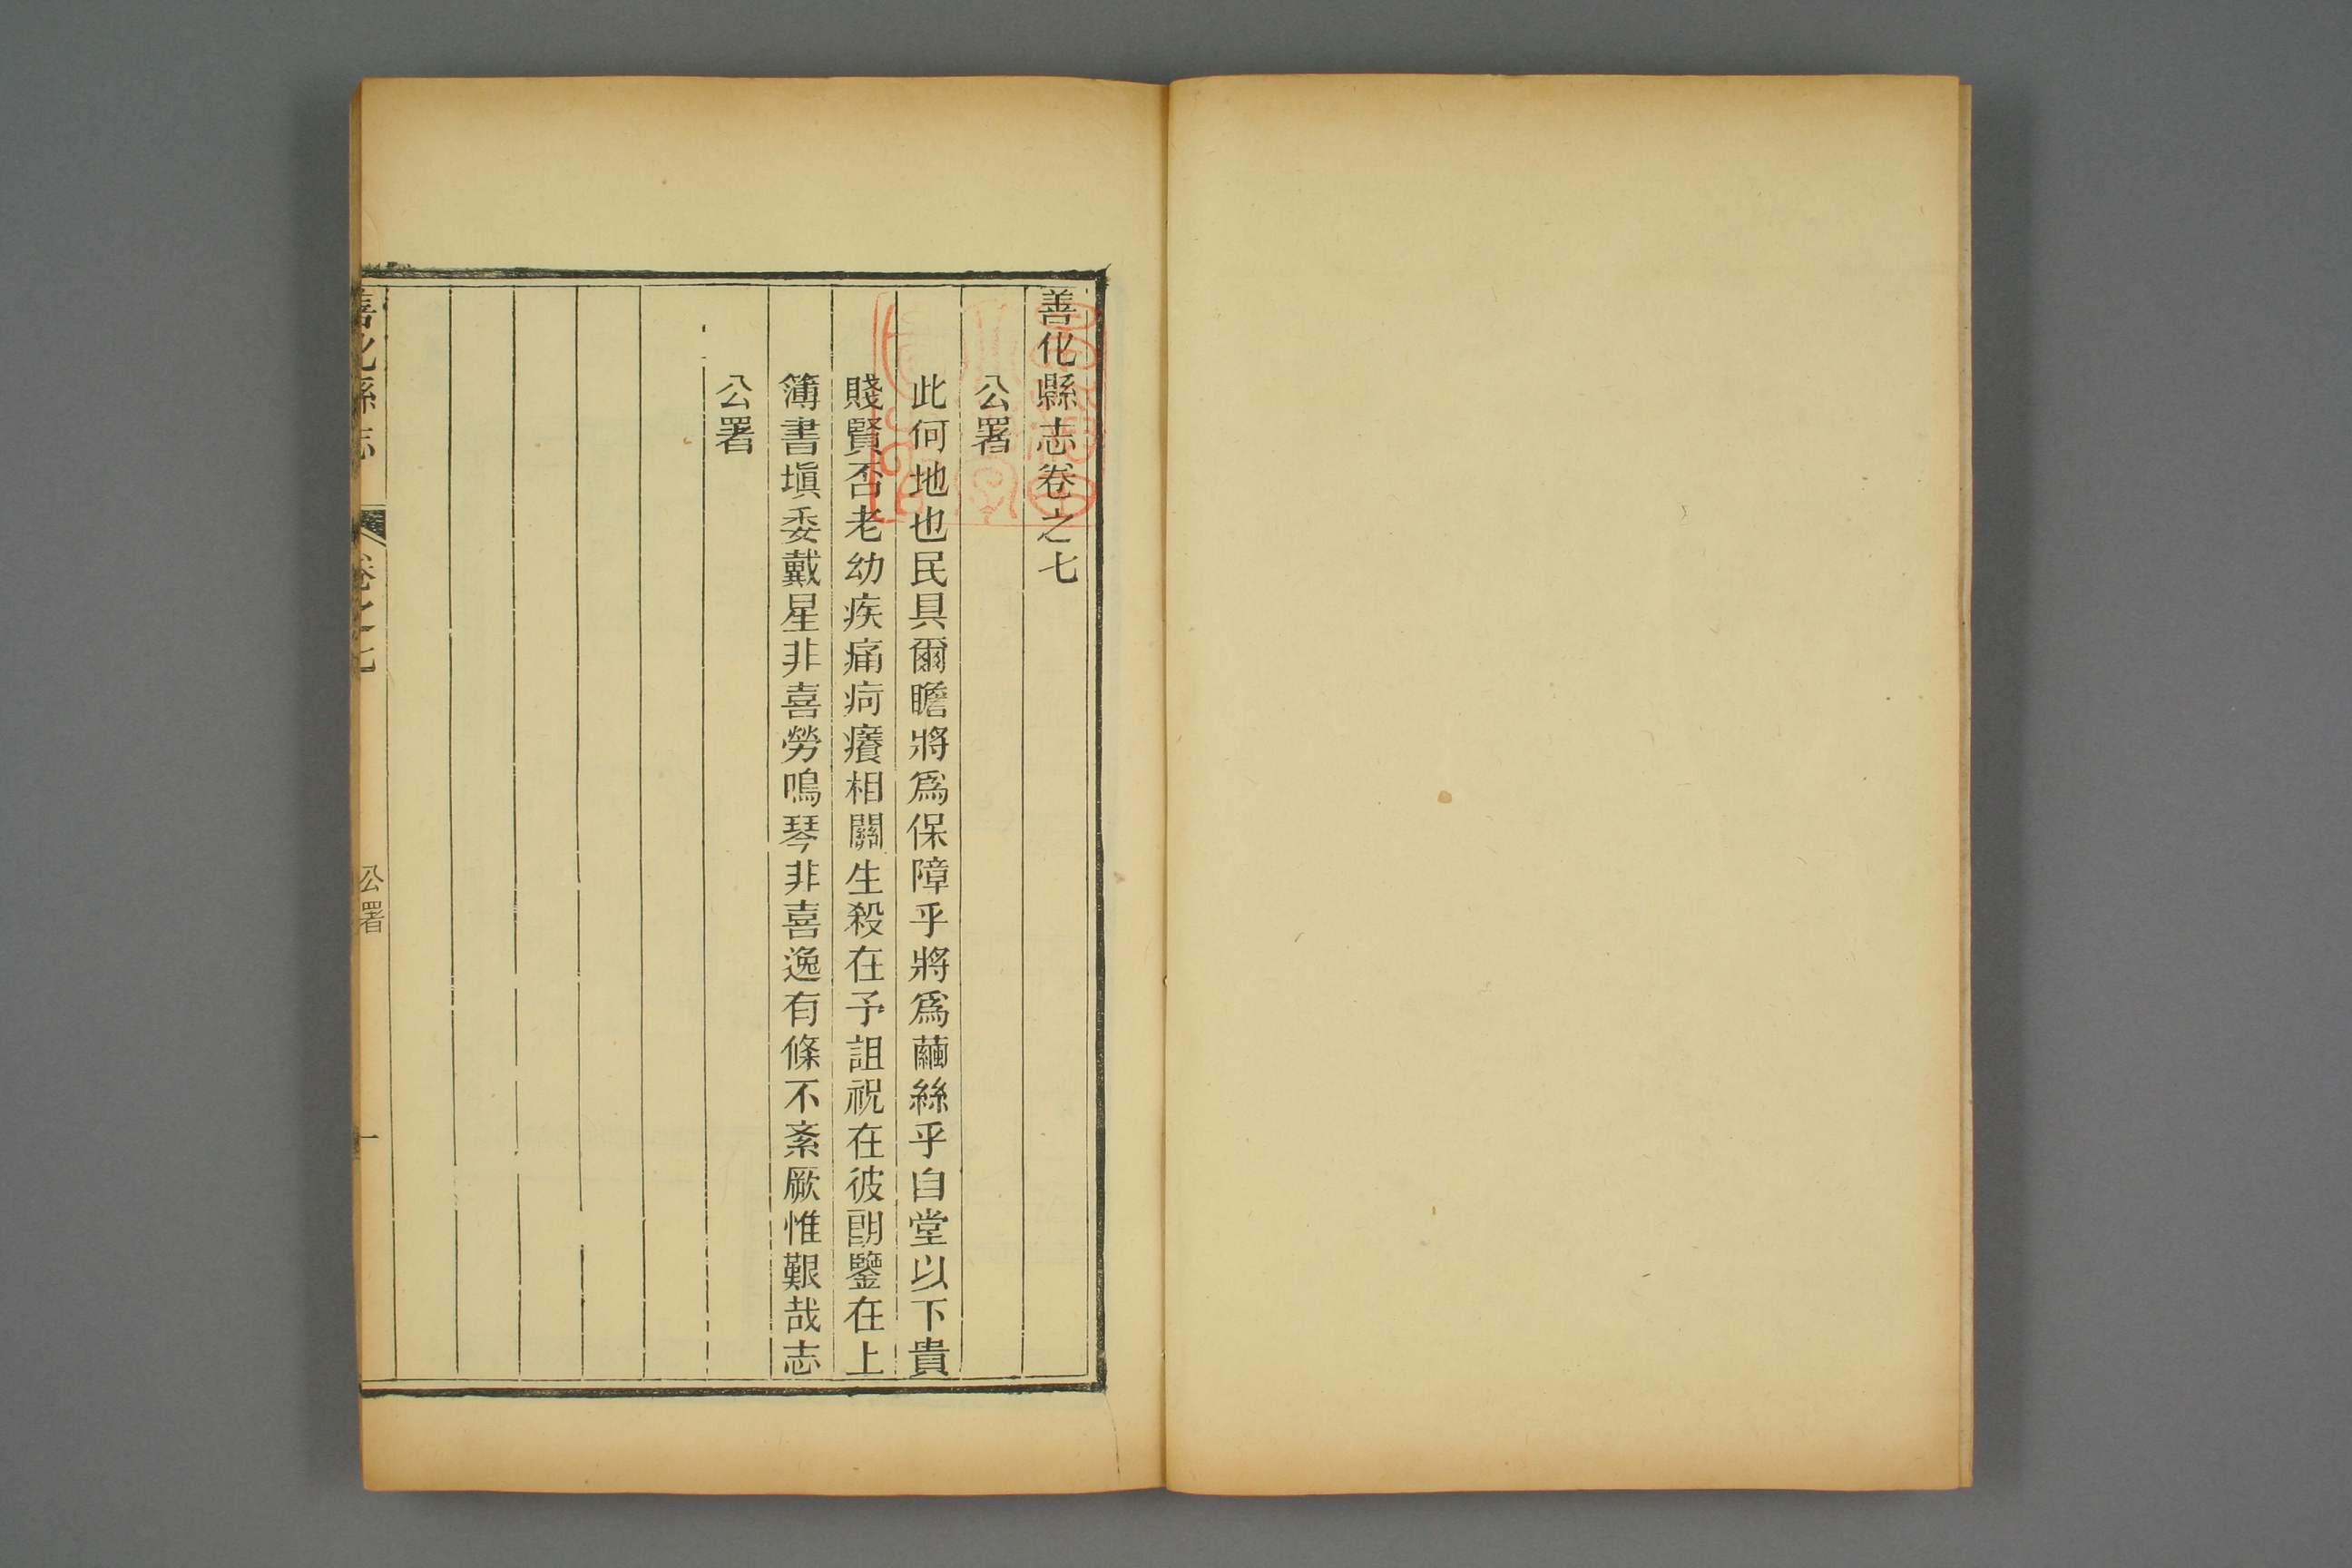 善化縣志卷之七
公署
此何地也民具爾瞻將爲保障乎將爲繭絲乎自堂以下貴
賤賢否老幼疾痛疴癢相關生殺在予詛祝在彼朗鑒在上
簿書塡委戴星非喜勞鳴琴非喜逸有條不紊厥惟艱哉志
公署
善化縣志
卷之七
公署
一